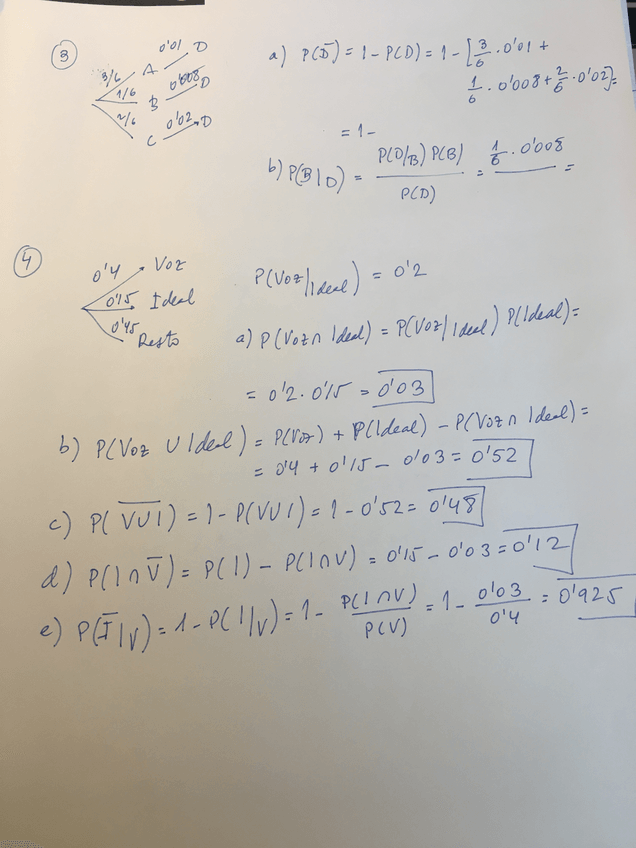 3
0'01 D
3/6 A
1/6 B 0'008 D
2/6 C 0'02 D
a) P(D̅) = 1 - P(D) = 1 - [3/6 · 0'01 +
1/6 · 0'008 + 2/6 · 0'02] =
= 1 -
b) P(B|D) = P(D/B) P(B) / P(D) = 1/6 · 0'008 / =
4
0'4 Voz
0'15 Ideal
0'45 Resto
P(Voz/Ideal) = 0'2
a) P(Voz ∩ Ideal) = P(Voz/Ideal) P(Ideal) =
= 0'2 · 0'15 = 0'03
b) P(Voz ∪ Ideal) = P(Voz) + P(Ideal) - P(Voz ∩ Ideal) =
= 0'4 + 0'15 - 0'03 = 0'52
c) P(V̅∪̅I̅) = 1 - P(V∪I) = 1 - 0'52 = 0'48
d) P(I ∩ V̅) = P(I) - P(I∩V) = 0'15 - 0'03 = 0'12
e) P(I̅/V) = 1 - P(I/V) = 1 - P(I∩V) / P(V) = 1 - 0'03 / 0'4 = 0'925